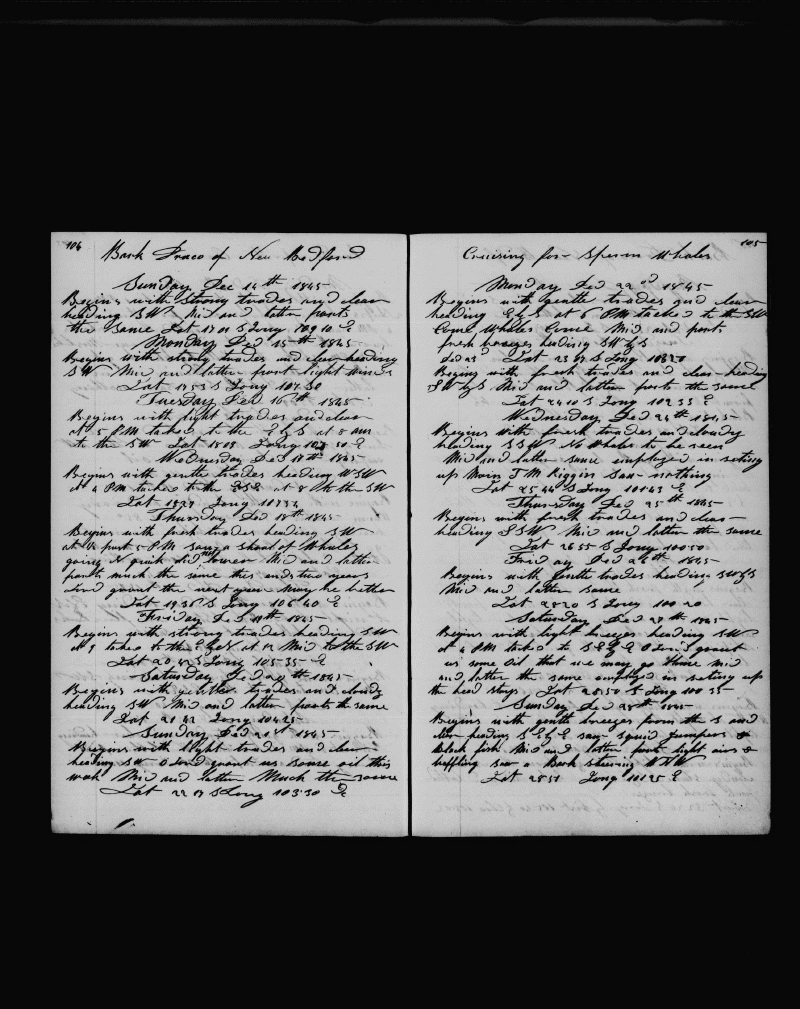 104
Bark Draco of New Bedford
Sunday Dec 14th 1845
Begins with strong trades and clear
heading SW Mid and latter parts
the same Lat 17 01 S Long 109 10 E
Monday Dec 15th 1845
Begins with strong trades and clear heading
SW Mid and latter part light winds
Lat 17 53 S Long 107 30
Tuesday Dec 16th 1845
Begins with light trades and clear
at 5 PM tacked to the E by S at 8 am
to the SW Lat 18 05 Long 107 50 E
Wednesday Dec 17th 1845
Begins with gentle trades heading WSW
at 4 PM tacked to the ESE at 8 to the SW
Lat 18 29 Long 107 32
Thursday Dec 18th 1845
Begins with fresh trades heading SW
at ½ past 5 PM saw a shoal of Whales
going quick did not lower Mid and latter
parts much the same this ends two years
Lord grant the next year may be better
Lat 19 36 S Long 106 40 E
Friday Dec 19th 1845
Begins with strong trades heading SW
at 9 tacked to the E by N at 12 Mid to the SW
Lat 20 42 S Long 105 35 E
Saturday Dec 20th 1845
Begins with gentle trades and cloudy
heading SW Mid and latter parts the same
Lat 21 42 Long 104 25
Sunday Dec 21st 1845
Begins with light trades and clear
heading SW O Lord grant us some oil this
week Mid and latter Much the same
Lat 22 19 S Long 103 30 E
105
Cruising for Sperm Whales
Monday Dec 22nd 1845
Begins with gentle trades and clear
heading E by S at 6 PM tacked to the SW
Come Whales Come Mid and parts
fresh breezes heading SW by S
Dec 23d Lat 23 37 S Long 103 20
Begins with fresh trades and clear heading
SW by S Mid and latter parts the same
Lat 24 10 S Long 102 33 E
Wednesday Dec 24th 1845
Begins with fresh trades and cloudy
heading SSW No Whales to be seen
Mid and latter same employed in seting
up Main T M Riggin saw nothing
Lat 25 44 S Long 101 43 E
Thursday Dec 25th 1845
Begins with fresh trades and clear
heading SSW Mid and latter the same
Lat 26 55 S Long 100 50
Friday Dec 26th 1845
Begins with gentle trades heading SW by S
Mid and latter same
Lat 28 20 S Long 100 20
Saturday Dec 27th 1845
Begins with light breezes heading SW
at 4 PM tacked to SE by E O Lord grant
us some Oil that we may go home Mid
and latter the same employed in seting up
the head stays Lat 28 50 S Long 100 35
Sunday Dec 28th 1845
Begins with gentle breezes from the S and
heading SE by E saw squid jumpers &
black fish Mid and latter parts light airs &
baffling saw a Bark steering WNW
Lat 28 51 Long 101 25 E